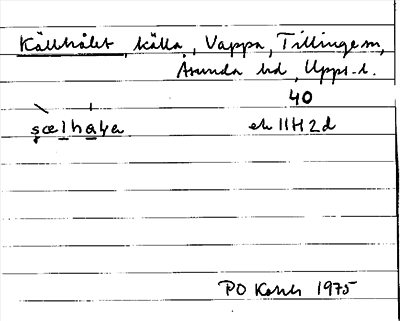 Källhålet, källa, Vappa, Tillinge sn,
Åsunda hd, Upps. l.
40
ek 11H2d
PO 1975